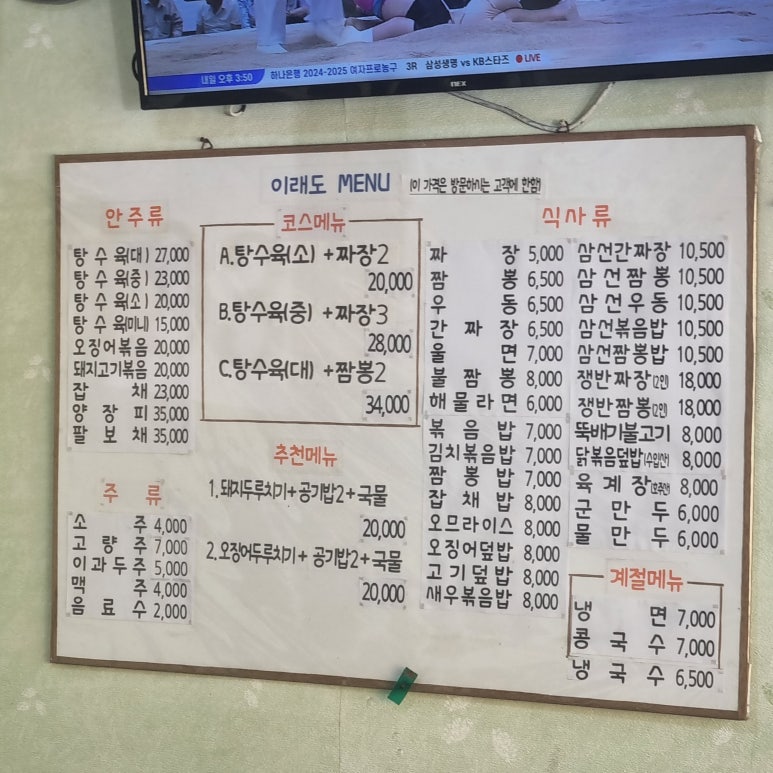 내일 오후 3:50 하나은행 2024-2025 여자프로농구 3R 삼성생명 vs KB스타즈 LIVE
nex
이래도 MENU (이 가격은 방문하시는 고객에 한함)
안주류
탕수육(대) 27,000
탕수육(중) 23,000
탕수육(소) 20,000
탕수육(미니) 15,000
오징어볶음 20,000
돼지고기볶음 20,000
잡채 23,000
양장피 35,000
팔보채 35,000
주류
소주 4,000
고량주 7,000
이과두주 5,000
맥주 4,000
음료수 2,000
코스메뉴
A.탕수육(소)+짜장2
20,000
B.탕수육(중)+짜장3
28,000
C.탕수육(대)+짬뽕2
34,000
추천메뉴
1.돼지두루치기+공기밥2+국물
20,000
2.오징어두루치기+공기밥2+국물
20,000
식사류
짜장 5,000
짬뽕 6,500
우동 6,500
간짜장 6,500
울면 7,000
불짬뽕 8,000
해물라면 6,000
볶음밥 7,000
김치볶음밥 7,000
짬뽕밥 7,000
잡채밥 8,000
오므라이스 8,000
오징어덮밥 8,000
고기덮밥 8,000
새우볶음밥 8,000
삼선간짜장 10,500
삼선짬뽕 10,500
삼선우동 10,500
삼선볶음밥 10,500
삼선짬뽕밥 10,500
쟁반짜장(2인) 18,000
쟁반짬뽕(2인) 18,000
뚝배기불고기 8,000
닭볶음덮밥(수입산) 8,000
육계장(호주산) 8,000
군만두 6,000
물만두 6,000
계절메뉴
냉면 7,000
콩국수 7,000
냉국수 6,500